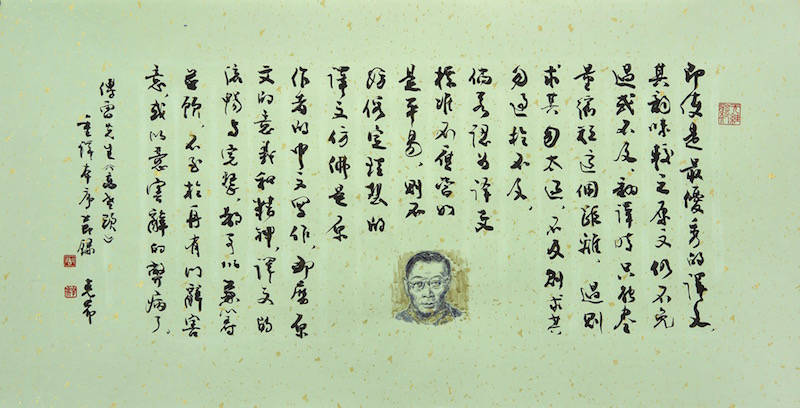 即使是最優秀的譯文，
其韵味較之原文仍不免
過或不及。翻譯時只能盡
量縮短這個距離，過則
求其勿太過，不及則求其
勿過於不及。
倘若認為譯文
標准不應當如
是平易，則不
妨假定理想的
譯文仿佛是原
作者的中文寫作，那麼原
文的意義和精神，譯文的
流暢與完整，都可以兼籌
並顧，不至於再有以辭害
意，或以意害辭的弊病了。
傅雷先生《高老頭》
重譯本序節錄 克希